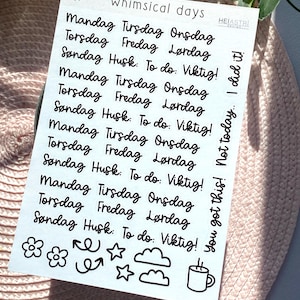 whimsical days
Mandag Tirsdag Onsdag
Torsdag Fredag Lørdag
Søndag Husk: To do: Viktig!
Mandag Tirsdag Onsdag
Torsdag Fredag Lørdag
Søndag Husk: To do: Viktig!
Mandag Tirsdag Onsdag
Torsdag Fredag Lørdag
Søndag Husk: To do: Viktig!
Mandag Tirsdag Onsdag
Torsdag Fredag Lørdag
Søndag Husk: To do: Viktig!
You got this! Not today... I did it!